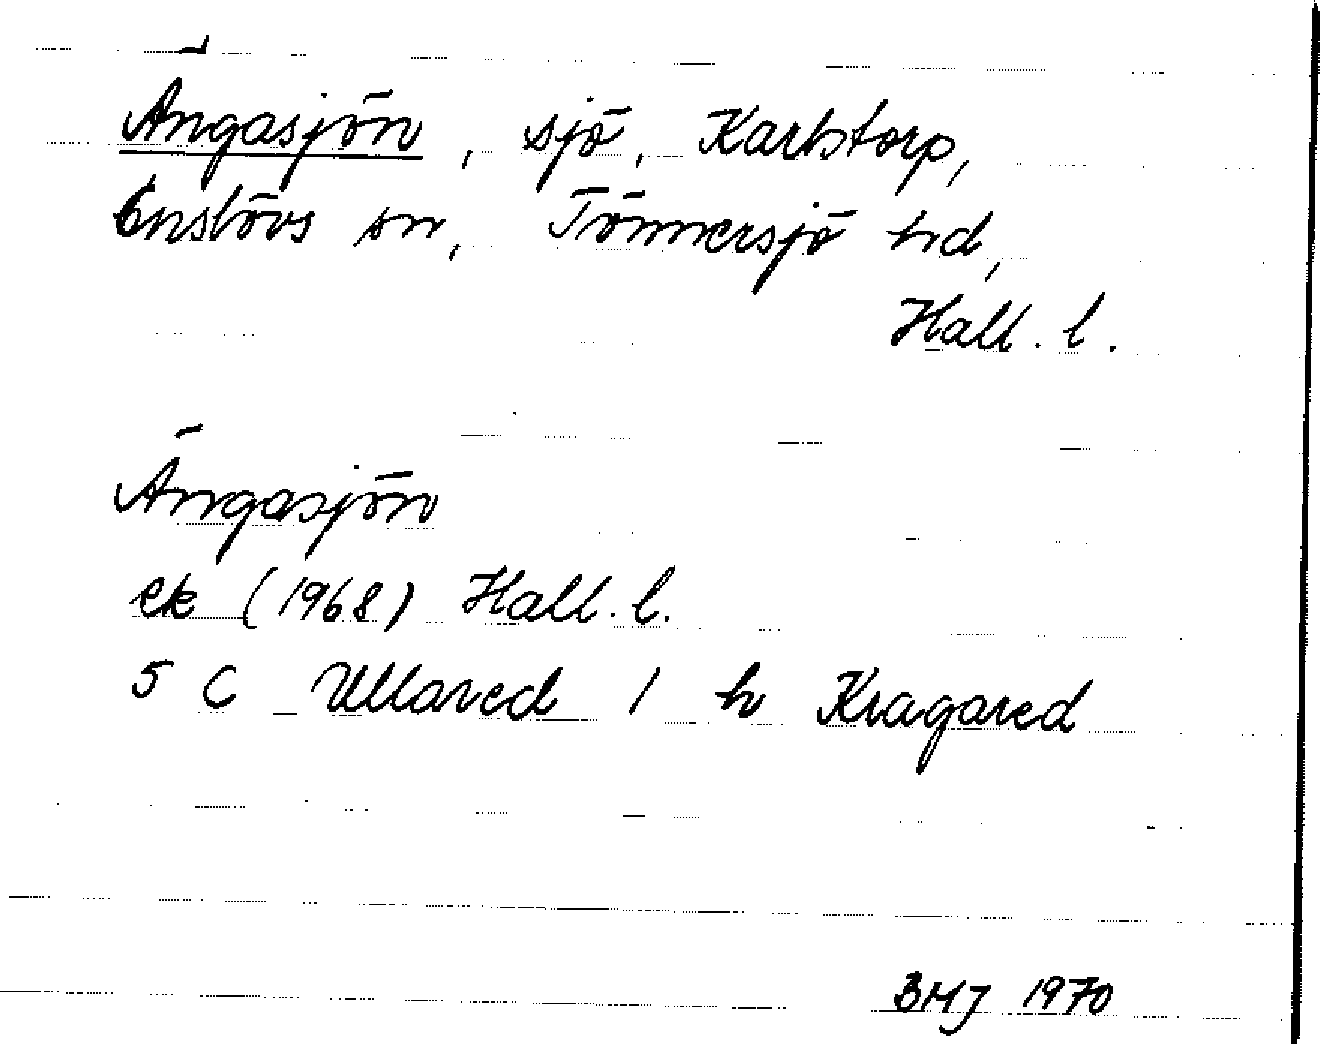 Ängasjön, sjö, Karlstorp,
Enslövs sn, Tönnersjö hd,
Hall. l.
Ängasjön
ek (1968) Hall. l.
5 C Ullared 1 h Kragared
BMJ 1970